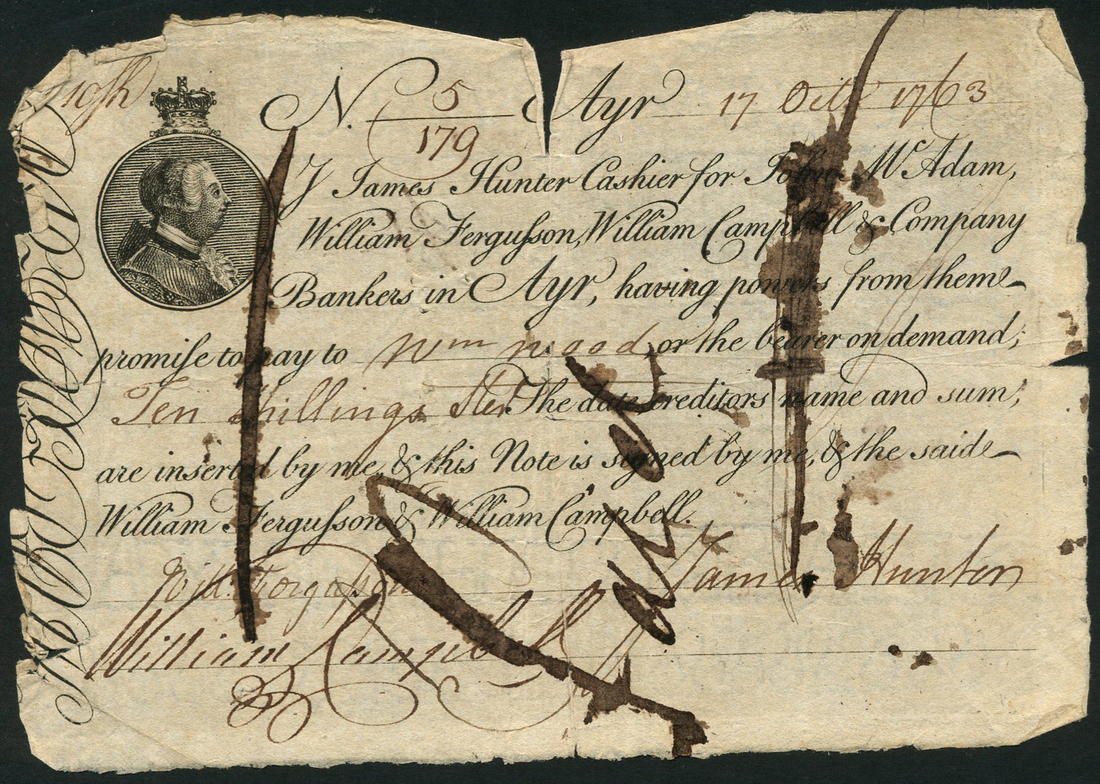 10sh
N. 5/179 Ayr 17 Octr 1763
I James Hunter Cashier for John McAdam,
William Fergusson, William Campbell & Company
Bankers in Ayr, having powers from them
promise to pay to Wm Wood or the bearer on demand;
Ten Shillings Ster The date creditors name and sum;
are inserted by me, & this Note is signed by me, & the said
William Fergusson & William Campbell.
Will: Fergusson James Hunter
William Campbell